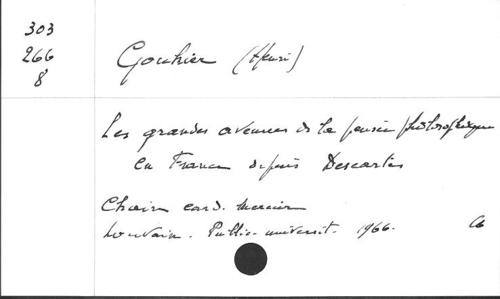 303
266
8°
Gouhier (Henri)
Les grandes avenues de la pensée philosophique
en France depuis Descartes
Chaire card. Mercier
Louvain. Public. universit. 1966.